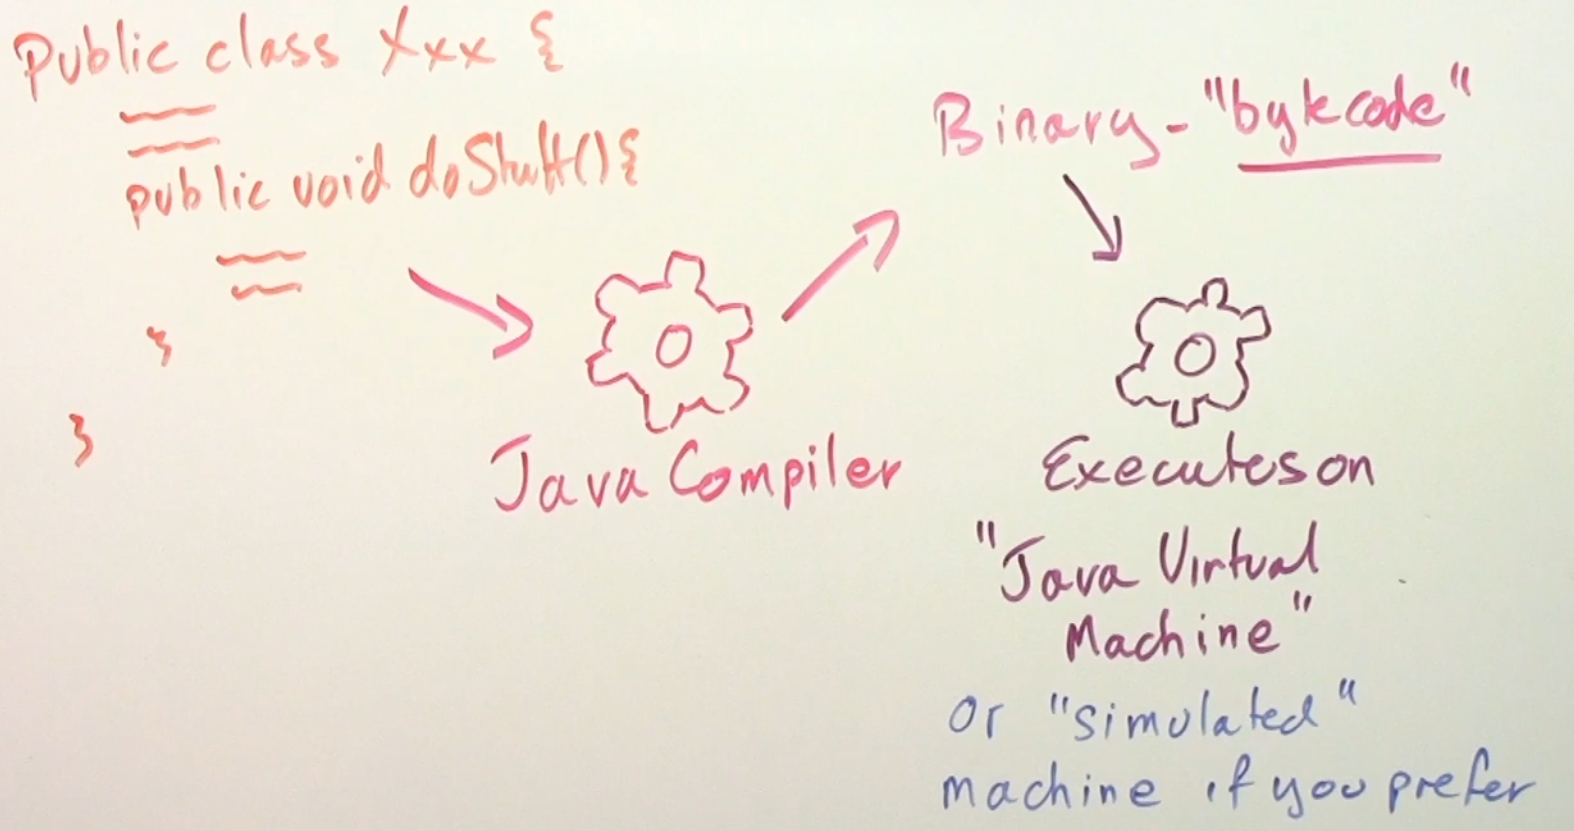 Public class Xxx {
public void doStuff(){
}
}
Java Compiler
Binary - "bytecode"
Executes on
"Java Virtual
Machine"
Or "simulated"
machine if you prefer